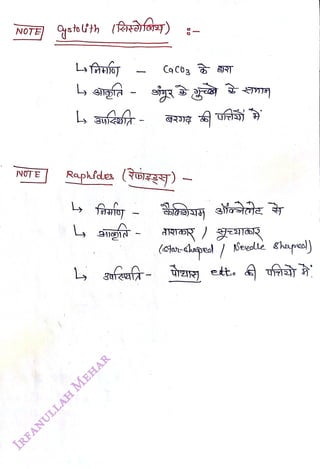 NOTE Cystolith (सिस्टोलिथ) :-
↳ निर्माण - CaCO3 के द्वारा
↳ आकृति - अंगूर के गुच्छे के समान
↳ उपस्थिति - बरगद की पत्तियों में
NOTE Raphides (रैफाइड्स) -
↳ निर्माण - कैल्शियम ऑक्जेलेट से
↳ आकृति - ताराकार / सूच्याकार
(Star-shaped / Needle shaped)
↳ उपस्थिति - पोथास ett. की पत्तियों में
IRFANULLAH MEHAR